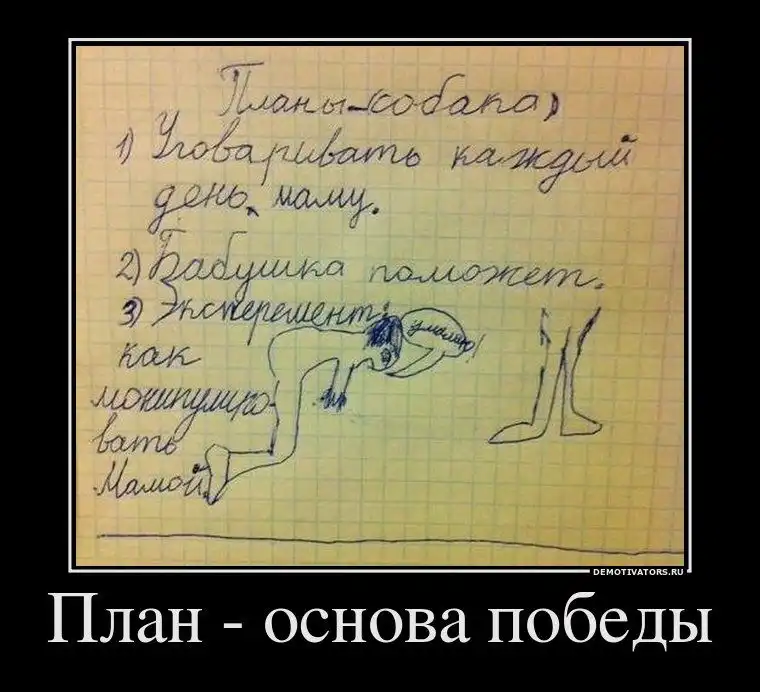 Планы-собака)
1) Уговаривать каждый
день, маму.
2) Бабушка поможет.
3) Эксперемент:
как
монипулиро-
вать
Мамой.
умаляю!
DEMOTIVATORS.RU
План - основа победы